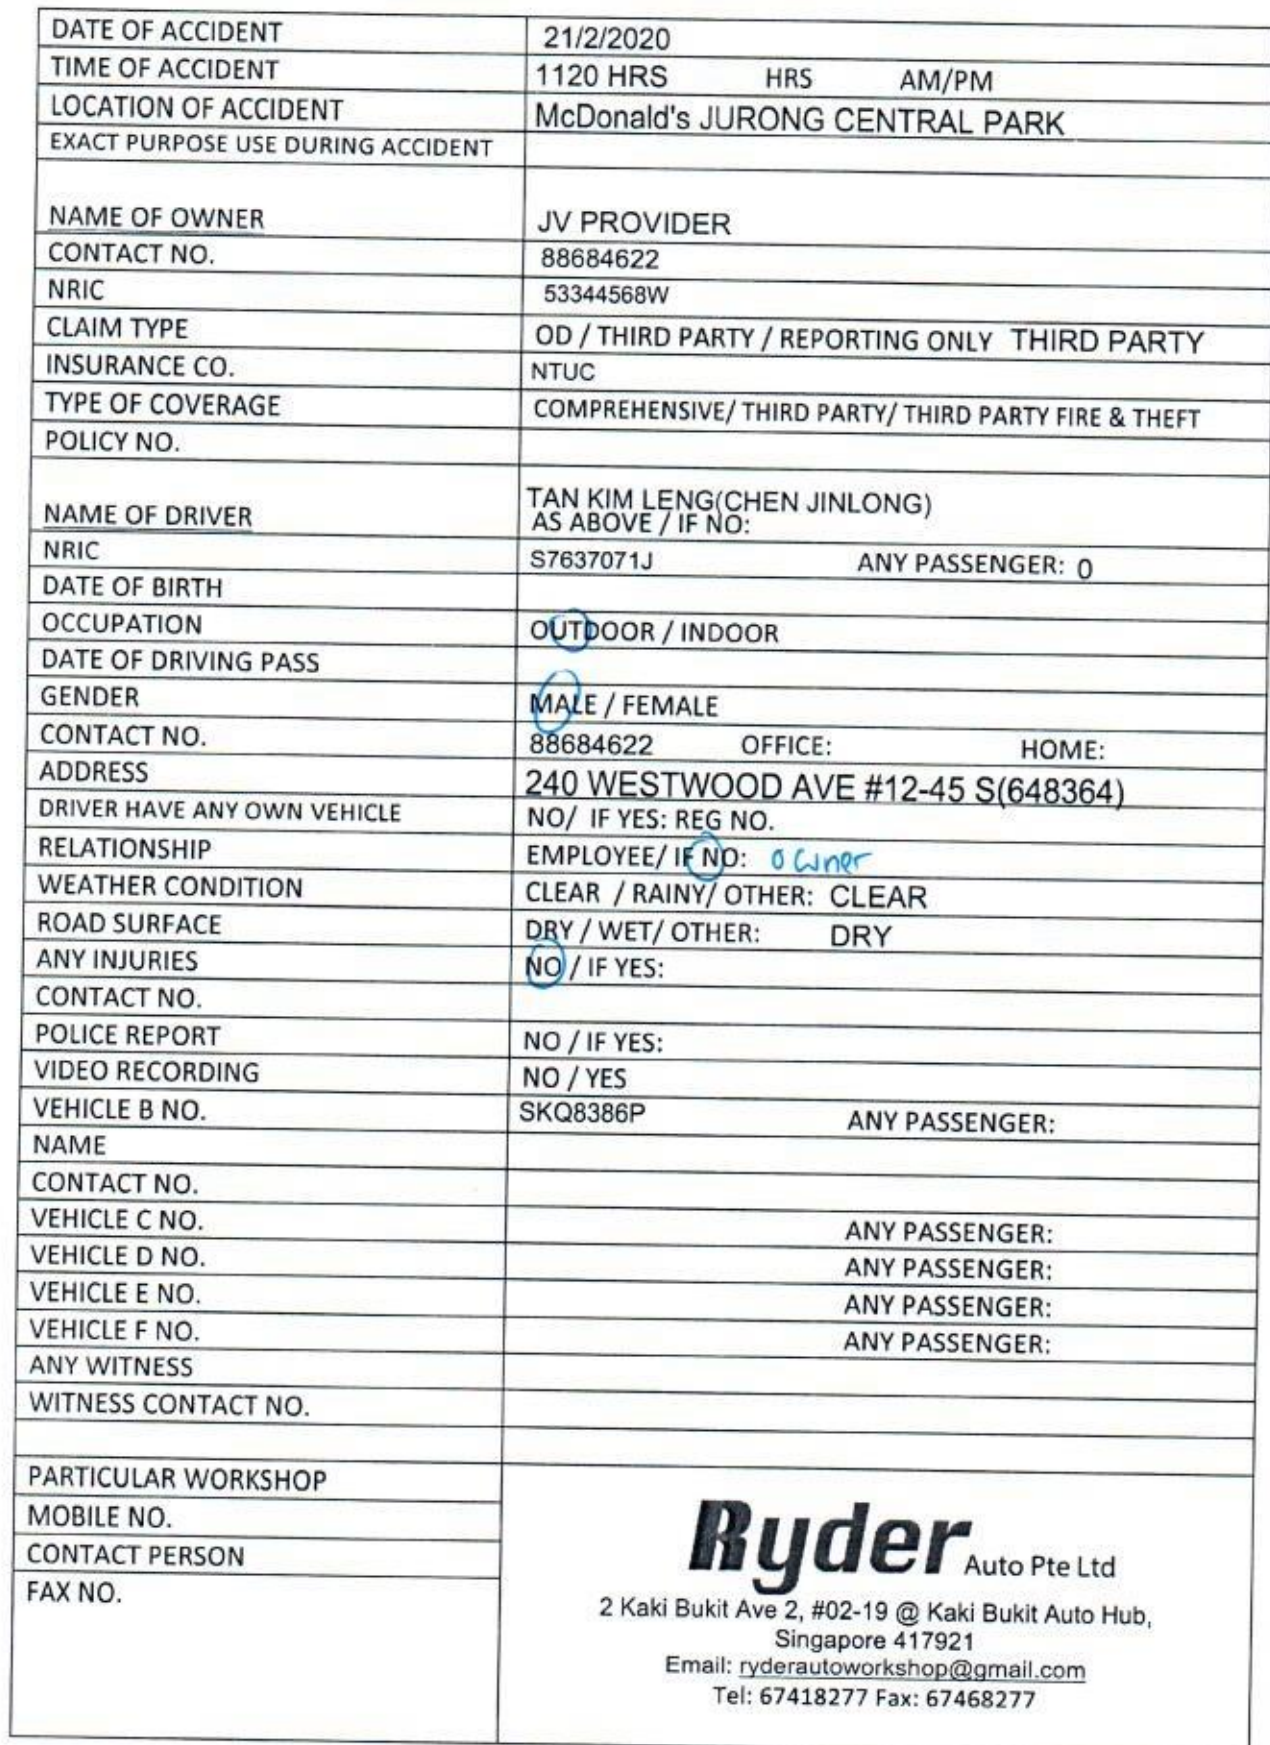 DATE OF ACCIDENT 21/2/2020
TIME OF ACCIDENT 1120 HRS HRS AM/PM
LOCATION OF ACCIDENT McDonald's JURONG CENTRAL PARK
EXACT PURPOSE USE DURING ACCIDENT
NAME OF OWNER JV PROVIDER
CONTACT NO. 88684622
NRIC 53344568W
CLAIM TYPE OD / THIRD PARTY / REPORTING ONLY THIRD PARTY
INSURANCE CO. NTUC
TYPE OF COVERAGE COMPREHENSIVE/ THIRD PARTY/ THIRD PARTY FIRE & THEFT
POLICY NO.
TAN KIM LENG(CHEN JINLONG)
NAME OF DRIVER AS ABOVE / IF NO:
NRIC S7637071J ANY PASSENGER: 0
DATE OF BIRTH
OCCUPATION OUTDOOR / INDOOR
DATE OF DRIVING PASS
GENDER MALE / FEMALE
CONTACT NO. 88684622 OFFICE: HOME:
ADDRESS 240 WESTWOOD AVE #12-45 S(648364)
DRIVER HAVE ANY OWN VEHICLE NO/ IF YES: REG NO.
RELATIONSHIP EMPLOYEE/ IF NO: owner
WEATHER CONDITION CLEAR / RAINY/ OTHER: CLEAR
ROAD SURFACE DRY / WET/ OTHER: DRY
ANY INJURIES NO / IF YES:
CONTACT NO.
POLICE REPORT NO / IF YES:
VIDEO RECORDING NO / YES
VEHICLE B NO. SKQ8386P ANY PASSENGER:
NAME
CONTACT NO.
VEHICLE C NO. ANY PASSENGER:
VEHICLE D NO. ANY PASSENGER:
VEHICLE E NO. ANY PASSENGER:
VEHICLE F NO. ANY PASSENGER:
ANY WITNESS
WITNESS CONTACT NO.
PARTICULAR WORKSHOP
MOBILE NO.
CONTACT PERSON
FAX NO.
Ryder Auto Pte Ltd
2 Kaki Bukit Ave 2, #02-19 @ Kaki Bukit Auto Hub,
Singapore 417921
Email: ryderautoworkshop@gmail.com
Tel: 67418277 Fax: 67468277